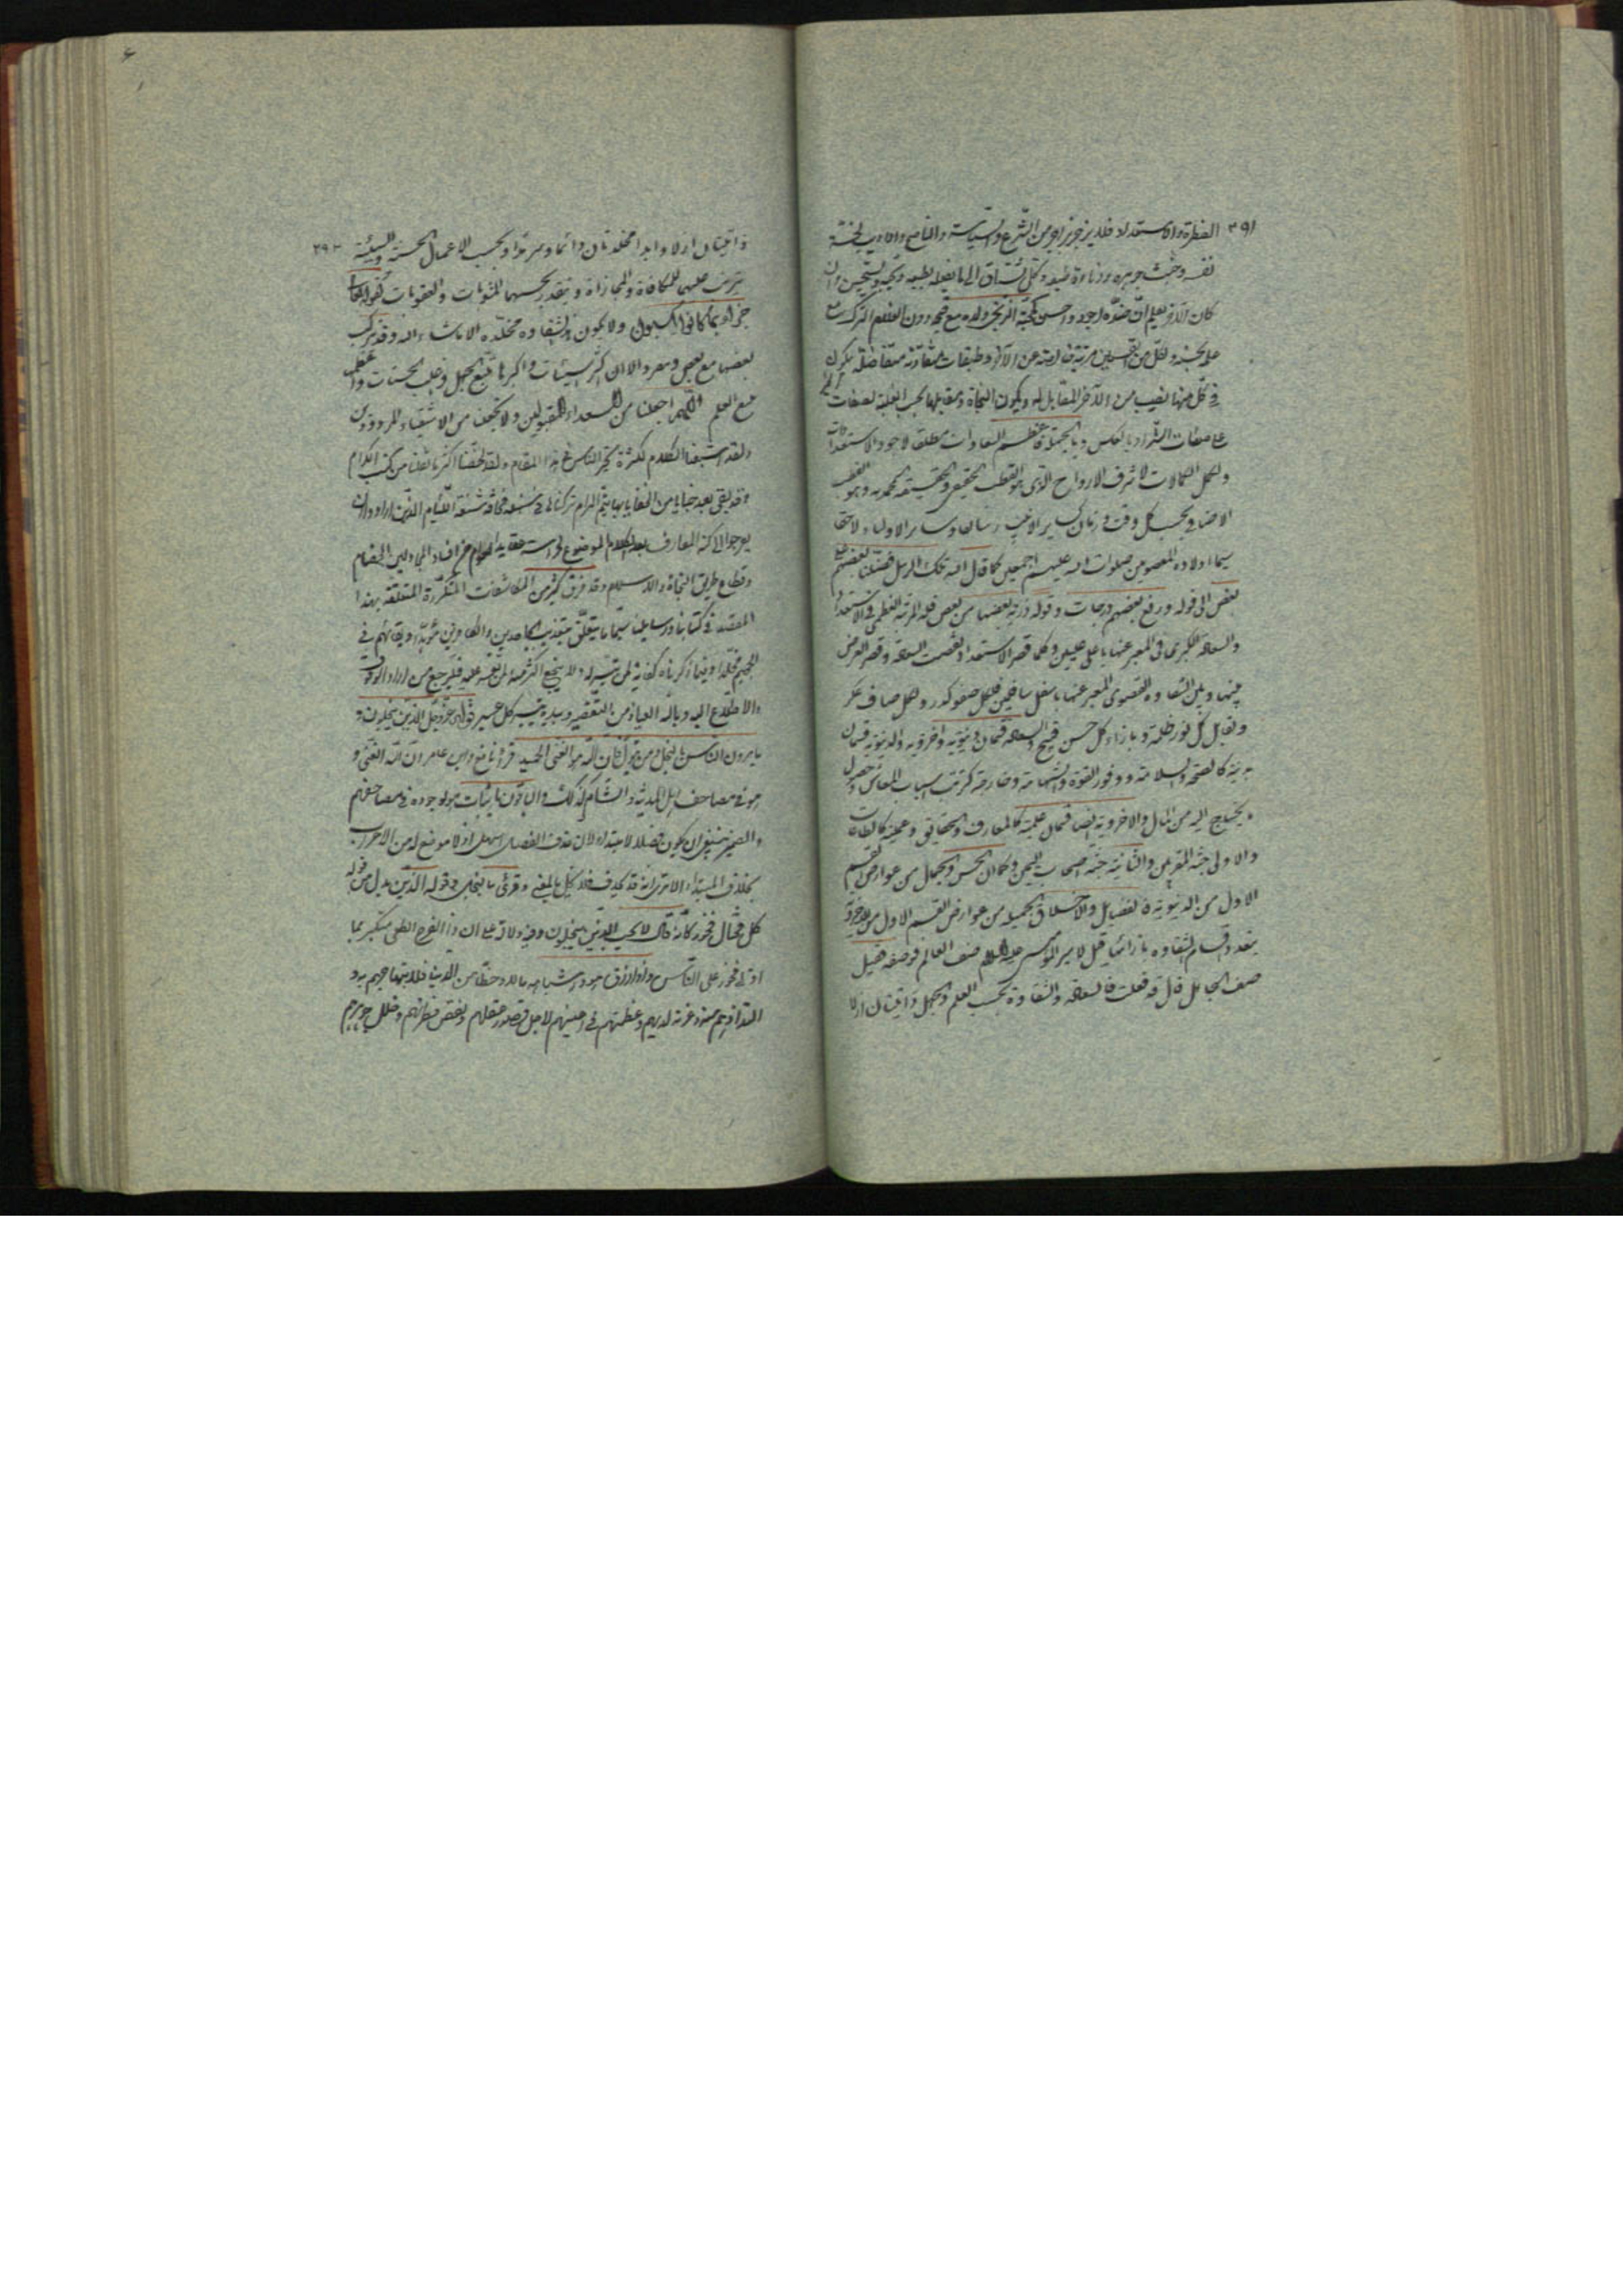 ٣٩١ الفطرة والاستعداد فلا يزجر بزاجر من الشرع والسياسة والناصح
نفسه وخبث جوهره ودناءة طبعه وكل يشتاق الى ما يفعله بطبعه ويحبه ويستحسن وان
كان الآخر يعلم ان ضده اجود واحسن كمحبة الزنجى ولده مع قبحه دون الغلام التركى مع
على حسنه ولكل من القسمين مرتبة عن الآخر وطبقات متفاوتة متفاضلة يكون
فى كل منها نصيب من الآخر المقابل له ويكون النجاة ومقابلها بحسب الغلبة لصفات الخير
على صفات الشر او بالعكس وبالجملة فاعظم السعادات مطلقا لاجود الاستعدادات
واكمل الكمالات لاشرف الارواح الذى هو القطب الحقيقى والحقيقة المحمدية وهو القطب
وبحسب كل وقت وزمان كساير الانبياء وساير الاولياء
سيما اولاده المعصومين صلوات الله عليهم اجمعين كما قال الله تلك الرسل فضلنا بعضهم على
بعض الى قوله ورفع بعضهم درجات وقوله ذرية بعضها من بعض فله المرتبة العظمى فى الاستعداد
والسعادة الكبرى المعبر عنها باعلى عليين وكلما قصر الاستعداد نقصت السعادة وقصر العرض
بينها وبين الشقاوة القصوى المعبر عنها باسفل سافلين فلكل صفو كدر ولكل صاف عكر
ويقابل كل نور ظلمة وبازاء كل حسن قبيح والسعادة قسمان دنيوية واخروية والدنيوية قسمان
بدنية كالصحة والسلامة ووفور القوة والشهامة وخارجة كترتب اسباب المعاش وحصول
ما يحتاج اليه من المال والاخروية ايضا قسمان علمية كالمعارف والحقايق وعملية كالطاعات
والاولى جنة المقربين والثانية جنة اصحاب اليمين وكما ان الحسن والجمال من عوارض القسم
الاول من الدنيوية فالفضايل والاخلاق الجميلة من عوارض القسم الاول من الاخروية
يتعدد اقسام الشقاوة بازائها قيل لامير المؤمنين عليه السلام صف العالم فوصفه فقيل
صف الجاهل قال قد فعلت فالسعادة والشقاوة بحسب العلم والجهل ذاتيتان ازلا
ذاتيتان ازلا وابدا مخلدتان دائما وسرمدا وبحسب الاعمال الحسنة والسيئة ٣٩٢
يترتب عليهما المكافاة والمجازاة ويتقدر بحسبهما المثوبات والعقوبات كقوله تعالى
جزاء بما كانوا يكسبون ولا يكون الشقاوة مخلدة الا ما شاء الله وقد يتركب
بعضها مع بعض الا ان اكثر السيئات واكبرها تتبع الجهل واغلب الحسنات واعظمها
مع العلم اللهم اجعلنا من السعداء المقبولين ولا تجعلنا من الاشقياء المردودين
ولقد اشبعنا الكلام لكثرة تحير الناس فى هذا المقام ولقد لخصنا اكثر ما نقلنا من كتب الكرام
وقد بقى بعد خبايا من الخفايا بها يتم المرام تركناها مخافة شنعة اللئام الذين ارادوا ان
يعرجوا الى كنه المعارف بعد الكلام الموضوع لحراسة عقايد العوام عن افساد المجادلين الخصام
وقطاع طريق النجاة والاسلام وقد فرق كثير من المكاشفات المتكررة المتعلقة بهذا
المقصد فى كتابنا ورسايلنا سيما ما يتعلق بتعذيب الجاحدين والكافرين مؤبدا وبقائهم فى
الجحيم مخلدا وفيما ذكرناه كفاية لمن تيسر له ولا ينجع اكثر منه لمن تعسر عليه فليرجع من اراد الوقوف
والاطلاع اليه وبالله العياذ من التقصير وبيده تيسير كل عسير قوله عز وجل الذين يبخلون و
يامرون الناس بالبخل ومن يتول فان الله هو الغنى الحميد قرا نافع وابن عامر ان الله الغنى و
هو فى مصاحف اهل المدينة والشام كذلك والباقون باثبات هو لوجوده فى مصاحفهم
والضمير ينبغى ان يكون فصلا لا مبتدا لان حذف الفصل اسهل اذ لا موضع له من الاعراب
بخلاف المبتدا الا ترى انه قد يحذف فلا يخل بالمعنى وقرئ بالبخل وقوله الذين بدل من قوله
كل مختال فخور كانه قال لا يحب الذين يبخلون وفيه دلالة على ان ذا الفرح المطغى متكبر بما
اوتى فخور على الناس واذا رزق هو واشباهه مالا وحظا من الدنيا
وعزته لديهم وعظمتهم فى اعينهم لاجل قصور عقلهم ونقص فطرتهم وخلل جوهرهم